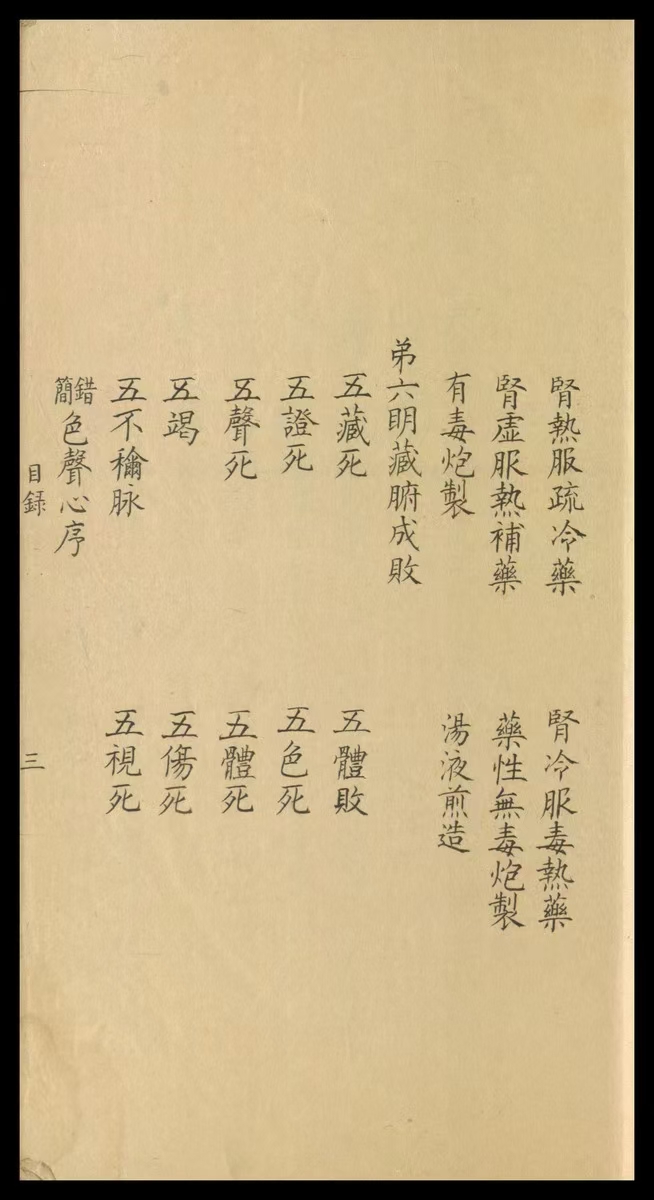 腎熱服疏冷藥　腎冷服毒熱藥
腎虛服熱補藥　藥性無毒炮製
有毒炮製　湯液煎造
弟六明藏腑成敗
五藏死　五體敗
五證死　五色死
五聲死　五體死
五竭　五傷死
五不穪脉　五視死
錯簡色聲心序
目録　三